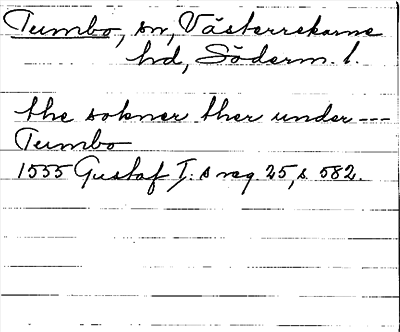 Tumbo, sn, Västerrekarne
hd, Söderm. l.
the sokner ther under ---
Tumbo
1555 Gustaf I:s reg. 25, s. 582.